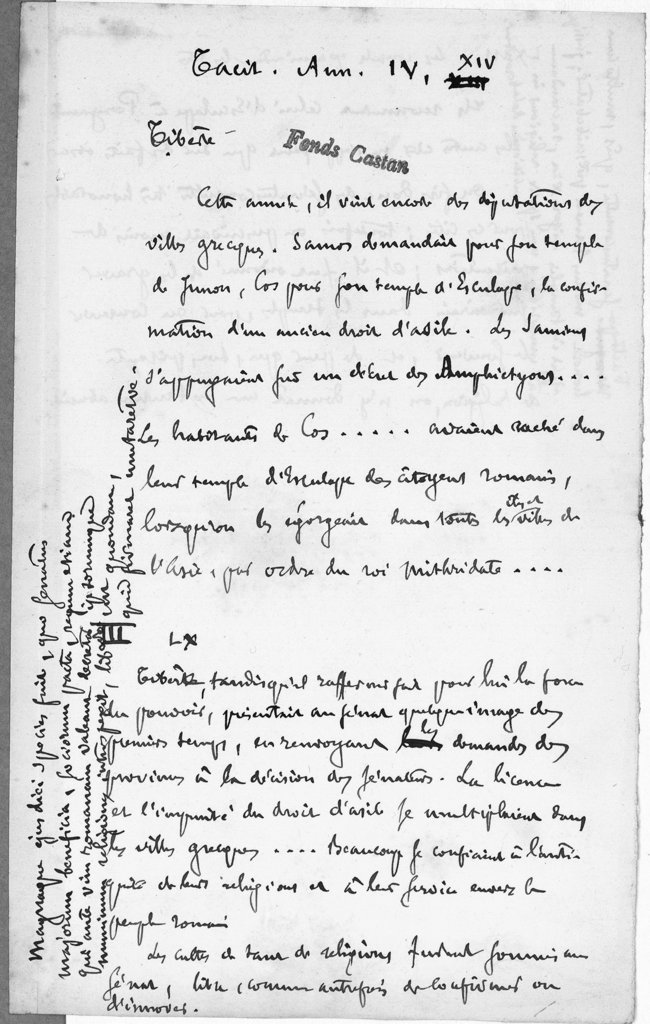 Tacit. Ann. IV, XIV
Tibère
Fonds Castan
Cette année, il vint encore des députations des
villes grecques. Samos demandait pour son temple
de Junon, Cos pour son temple d'Esculape, la confir-
mation d'un ancien droit d'asile. Les Samiens
s'appuyaient sur un décret des Amphictyons....
Les habitants de Cos..... avaient caché dans
leur temple d'Esculape des citoyens romains,
lorsqu'on les égorgeait dans toutes les îles et villes de
l'Asie, par ordre du roi Mithridate....
LX
Tibère, tandis qu'il raffermissait pour lui la force
du pouvoir, présentait au sénat quelque image des
premiers temps, en renvoyant les demandes des
provinces à la décision des sénateurs. La licence
et l'impunité du droit d'asile se multipliaient dans
les villes grecques.... Beaucoup se confiaient à l'anti-
quité de leurs religions et à leur service envers le
peuple romain
Les cultes de tant de religions furent soumis au
sénat, libre, comme autrefois de confirmer ou
d'innover.
Magnaque ejus diei species fuit, quo senatus
majorum beneficia, sociorum pacta, regum etiam
qui ante vim romanam valuerant decreta, ipsorumque
numinum religiones introspexit, libero, ut quondam,
quid firmaret mutaretve.